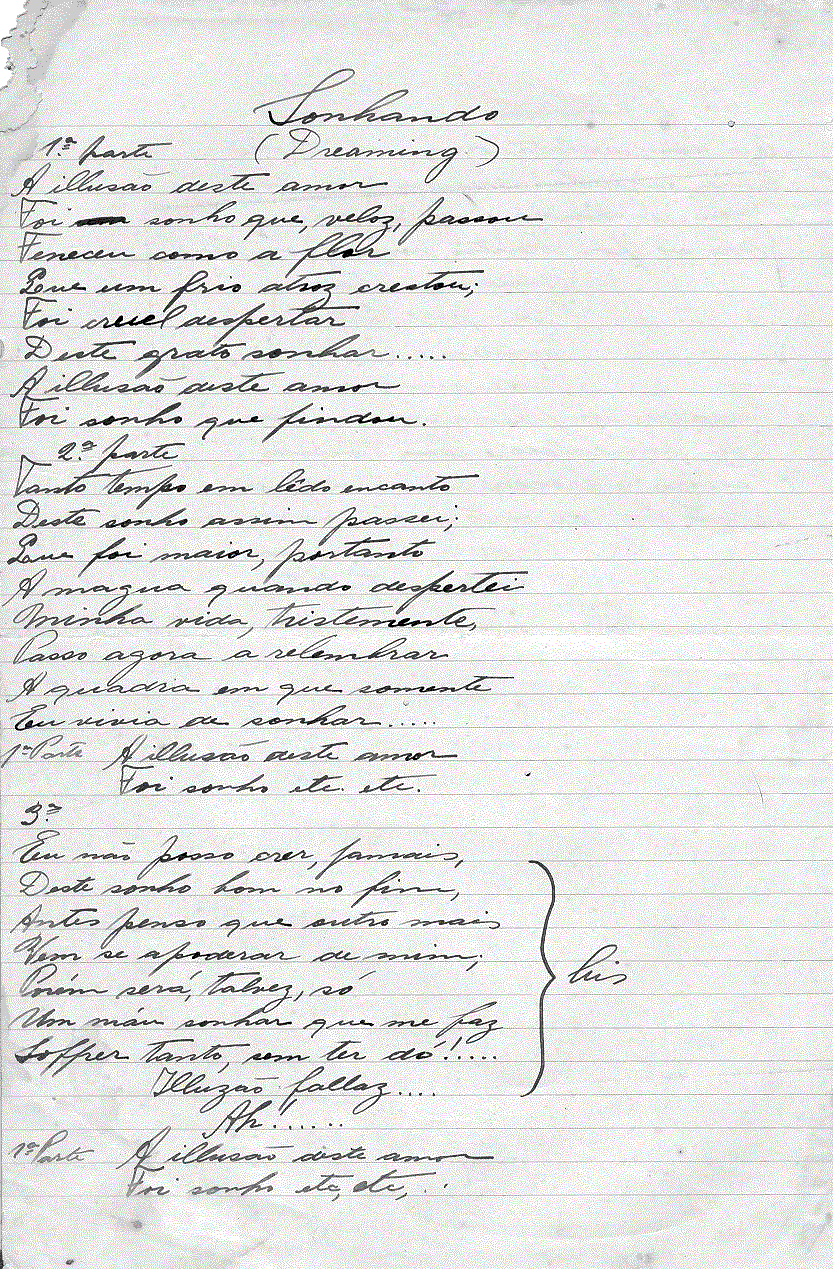 Sonhando
1ª parte (Dreaming)
A illusão deste amor
Foi sonho que, veloz, passou
Feneceu como a flor
Que um frio atroz crestou;
Foi cruel despertar
Deste grato sonhar.....
A illusão deste amor
Foi sonho que findou.
2ª parte
Tanto tempo em lêdo encanto
Deste sonho assim passei;
Que foi maior, portanto
A magua quando despertei
Minha vida, tristemente,
Passo agora a relembrar
A quadra em que somente
Eu vivia de sonhar.....
1ª Parte A illusão deste amor
Foi sonho etc. etc.
3ª
Eu não posso crer, jamais,
Deste sonho bom no fim,
Antes penso que outro mais
Vem se apoderar de mim;
Porém será, talvez, só
Um máu sonhar que me faz
Soffrer tanto, sem ter dó!....
Illuzão fallaz....
bis
Ah!.....
1ª Parte A illusão deste amor
Foi sonho etc, etc, ..